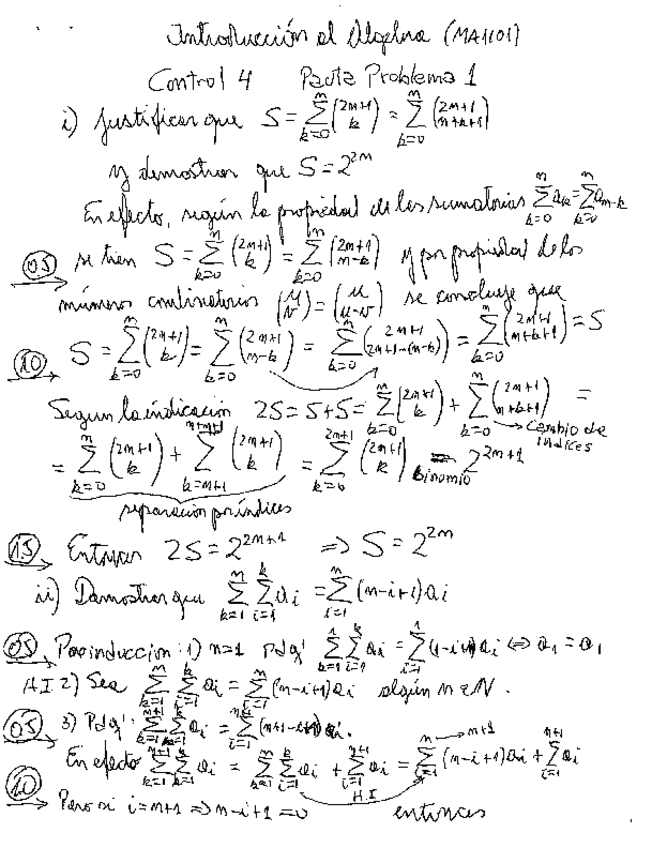 Introducción al Algebra (MA1101)
Control 4 Pauta Problema 1
i) Justificar que S = ∑_{k=0}^{n} (2n+1 k) = ∑_{k=0}^{n} (2n+1 n+k+1)
y demostrar que S = 2^{2n}
En efecto, según la propiedad de las sumatorias ∑_{k=0}^{n} a_k = ∑_{k=0}^{n} a_{n-k}
0.5 se tien S = ∑_{k=0}^{n} (2n+1 k) = ∑_{k=0}^{n} (2n+1 n-k) y por propiedad de los
números combinatorios (u v) = (u u-v) se concluye que
1.0 S = ∑_{k=0}^{n} (2n+1 k) = ∑_{k=0}^{n} (2n+1 n-k) = ∑_{k=0}^{n} (2n+1 2n+1-(n-k)) = ∑_{k=0}^{n} (2n+1 n+k+1) = S
Segun la indicación 2S = S+S = ∑_{k=0}^{n} (2n+1 k) + ∑_{k=0}^{n} (2n+1 n+k+1) =
→ Cambio de indices
= ∑_{k=0}^{n} (2n+1 k) + ∑_{k=n+1}^{n+n+1} (2n+1 k) = ∑_{k=0}^{2n+1} (2n+1 k) = 2^{2n+1}
binomio
separación por índices
1.5 Entonces 2S = 2^{2n+1} ⇒ S = 2^{2n}
ii) Demostrar que ∑_{k=1}^{n} ∑_{i=1}^{k} a_i = ∑_{i=1}^{n} (n-i+1) a_i
0.5 Por induccion: 1) n=1 pdq' ∑_{k=1}^{1} ∑_{i=1}^{k} a_i = ∑_{i=1}^{1} (1-i+1) a_i ⇔ a_1 = a_1
H.I. 2) Sea ∑_{k=1}^{n} ∑_{i=1}^{k} a_i = ∑_{i=1}^{n} (n-i+1) a_i algún n ∈ N.
0.5 3) Pdq': ∑_{k=1}^{n+1} ∑_{i=1}^{k} a_i = ∑_{i=1}^{n+1} (n+1-i+1) a_i.
En efecto ∑_{k=1}^{n+1} ∑_{i=1}^{k} a_i = ∑_{k=1}^{n} ∑_{i=1}^{k} a_i + ∑_{i=1}^{n+1} a_i = ∑_{i=1}^{n → n+1} (n-i+1) a_i + ∑_{i=1}^{n+1} a_i
H.I
1.0 Pero si i = n+1 ⇒ n-i+1 = 0 entonces